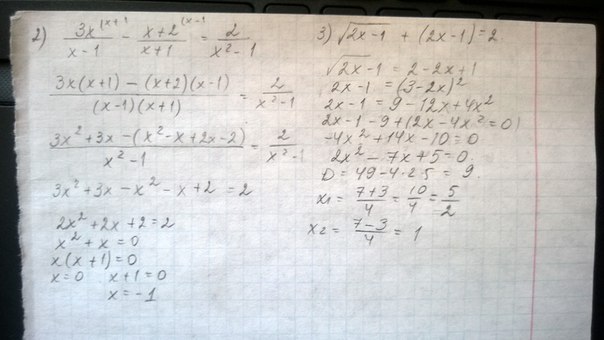 2) 3x^(x+1/(x-1) - x+2^(x-1/(x+1) = 2/(x²-1)
(3x(x+1) - (x+2)(x-1))/((x-1)(x+1)) = 2/(x²-1)
(3x²+3x-(x²-x+2x-2))/(x²-1) = 2/(x²-1)
3x²+3x-x²-x+2 = 2
2x²+2x+2=2
x²+x=0
x(x+1)=0
x=0 x+1=0
x=-1
3) √(2x-1) + (2x-1)=2
√(2x-1) = 2-2x+1
2x-1 = (3-2x)²
2x-1 = 9-12x+4x²
2x-1-9+12x-4x²=0
-4x²+14x-10=0
2x²-7x+5=0
D=49-4·2·5 = 9.
x1 = (7+3)/4 = 10/4 = 5/2
x2 = (7-3)/4 = 1